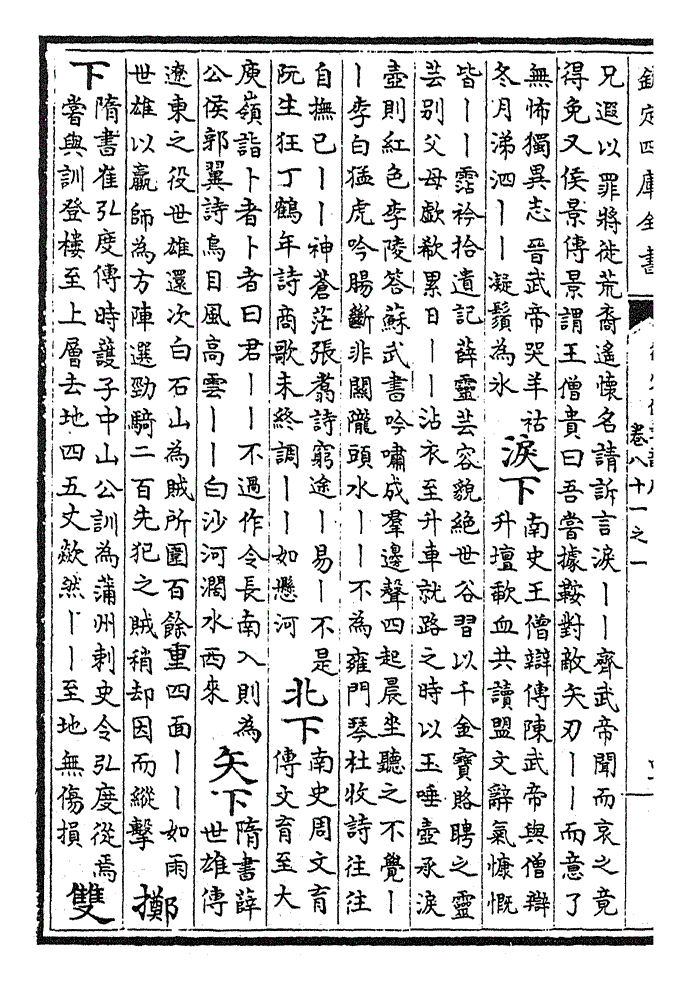 欽定四庫全書
卷八十一之一
兄遐以罪將徙荒裔遙懷名請訴言淚丨丨齊武帝聞而哀之竟
得免又侯景傳景謂王僧貴曰吾嘗據鞍對敵矢刃丨丨而意了
無怖獨異志晉武帝哭羊祜
冬月涕泗丨丨凝鬚為氷
淚下
南史王僧辯傳陳武帝與僧辯
升壇歃血共讀盟文辭氣慷慨
皆丨丨霑衿拾遺記薛靈芸容貌絕世谷習以千金寶賂聘之靈
芸别父母歔欷累日丨丨沾衣至升車就路之時以玉唾壺承淚
壺則紅色李陵答蘇武書吟嘯成羣邊聲四起晨坐聽之不覺丨
丨李白猛虎吟腸斷非關隴頭水丨丨不為雍門琴杜牧詩往往
自撫已丨丨神蒼茫張翥詩窮途丨易丨不是
阮生狂丁鶴年詩商歌未終調丨丨如懸河
北下
南史周文育
傳文育至大
庾嶺詣卜者卜者曰君丨丨不過作令長南入則為
公侯郭翼詩鳥目風高雲丨丨白沙河濶水西來
矢下
隋書薛
世雄傳
遼東之役世雄還次白石山為賊所圍百餘重四面丨丨如雨
世雄以羸師為方陣選勁騎二百先犯之賊稍却因而縱擊
擲
下
隋書崔弘度傳時護子中山公訓為蒲州刺史令弘度從焉
嘗與訓登樓至上層去地四五丈歘然丨丨至地無傷損
雙